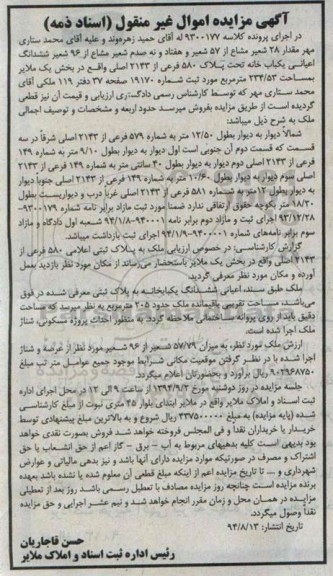 آگهی مزایده اموال غیر منقول (اسناد ذمه)
در اجرای پرونده کلاسه ۹۳۰۰۱۷۷ له آقای حمید زهره‌وند و علیه آقای محمد ستاری
مهر مقدار ۲۸ شعیر مشاع از ۵۷ شعیر و هفتاد و نه صدم شعیر مشاع از ۹۶ شعیر ششدانگ
اعیانی یکباب خانه تحت پلاک ۵۸۰ فرعی از ۲۱۴۳ اصلی واقع در بخش یک ملایر
بمساحت ۲۳۴/۵۳ مترمربع مورد ثبت شماره ۱۹۱۷۰ صفحه ۳۷ دفتر ۱۱۹ ملکی آقای
محمد ستاری مهر که توسط کارشناس رسمی دادگستری ارزیابی و قیمت آن نیز قطعی
گردیده است از طریق مزایده بفروش میرسد حدود اربعه و مشخصات و توصیف اجمالی
ملک به شرح ذیل میباشد:
شمالاً دیوار به دیوار بطول ۱۲/۵۰ متر به شماره ۵۷۹ فرعی از ۲۱۴۳ اصلی شرقاً در سه
قسمت که قسمت دوم آن جنوبی است اول دیوار به دیوار بطول ۹/۱۰ متر به شماره ۱۴۹
فرعی از ۲۱۴۳ اصلی دوم دیوار به دیوار بطول ۳۰ سانتی متر به شماره ۱۴۹ فرعی از ۲۱۴۳
اصلی سوم دیوار به دیوار بطول ۱۰/۶۰ متر به شماره ۱۴۹ فرعی از ۲۱۴۳ اصلی جنوباً دیوار
به دیوار بطول ۱۲ متر به شماره ۵۸۱ فرعی از ۲۱۴۳ اصلی غرباً درب و دیواریست بطول
۱۸/۲۰ متر بکوچه حقوق ارتفاقی ندارد ضمناً مورد ثبت مازاد برابر نامه شماره ۹۳۰۰۱۷۹-
۹۳/۱۲/۲۸ اجرای ثبت و مازاد دوم برابر نامه ۹۴۰۰۰۱-۹۴/۱/۸ شعبه اول دادگاه و مازاد
سوم برابر نامه‌های شماره ۹۴۰۰۰۱-۹۴/۱/۹ اجرای ثبت بازداشت میباشد.
گزارش کارشناسی: در خصوص ارزیابی ملک به پلاک ثبتی اعلامی ۵۸۰ فرعی از
۲۱۴۳ اصلی واقع در بخش یک ملایر باستحضار می‌رساند از مکان مورد نظر بازدید بعمل
آورده و مکان مورد نظر معرفی گردید.
ملک طبق سند، اعیانی ششدانگ یکبابخانه به پلاک ثبتی معرفی شده در فوق
می‌باشد، مساحت تقریبی باقیمانده ملک حدود ۲۰۵ مترمربع به نظر میرسد که مساحت
دقیق باید از روی پروانه ساختمانی ملاحظه گردد. به منظور احداث پروژه مسکونی، شناژ
ملک اجرا شده است.
ارزش ملک مورد نظر، به میزان ۵۷/۷۹ شعیر از ۹۶ شعیر مورد نظر از عرصه و شناژ
اجرا شده با در نظر گرفتن موقعیت مکانی شرایط موجود جمیع عوامل متر ثبه مبلغ
۹۰۲۹۶۸۷۵۰ ریال برآورد و بحضورتان اعلام میگردد.
جلسه مزایده در روز دوشنبه مورخ ۱۳۹۴/۹/۲ از ساعت ۹ الی ۱۲ در محل اجرای اداره
ثبت اسناد و املاک ملایر واقع در ملایر ابتدای بلوار ۴۵ متری نبوت از مبلغ کارشناسی
شده (پایه مزایده) به مبلغ ۴۳۷۵۰۰۰۰۰ ریال شروع و به بالاترین مبلغ پیشنهادی توسط
خریدار یا خریداران نقداً و فی المجلس فروخته خواهد شد فروش بصورت نقدی خواهد
بود بدیهی است کلیه بدهیهای مربوط به آب – برق – گاز اعم از حق انشعاب یا حق
اشتراک و مصرف در صورتیکه مورد مزایده دارای آنها باشد و نیز بدهی مالیاتی و عوارض
شهرداری و ... تا تاریخ مزایده اعم از اینکه مبلغ قطعی آن معلوم شده یا نشده باشد بعهده
برنده مزایده است چنانچه روز مزایده مصادف با تعطیل رسمی باشد روز بعد از تعطیلی
مزایده در همان محل و زمان مقرر انجام خواهد شد و نیم عشر اجرایی و حق مزایده
نقداً وصول میگردد.
تاریخ انتشار: ۹۴/۸/۱۳
حسن قاجاریان
رئیس اداره ثبت اسناد و املاک ملایر